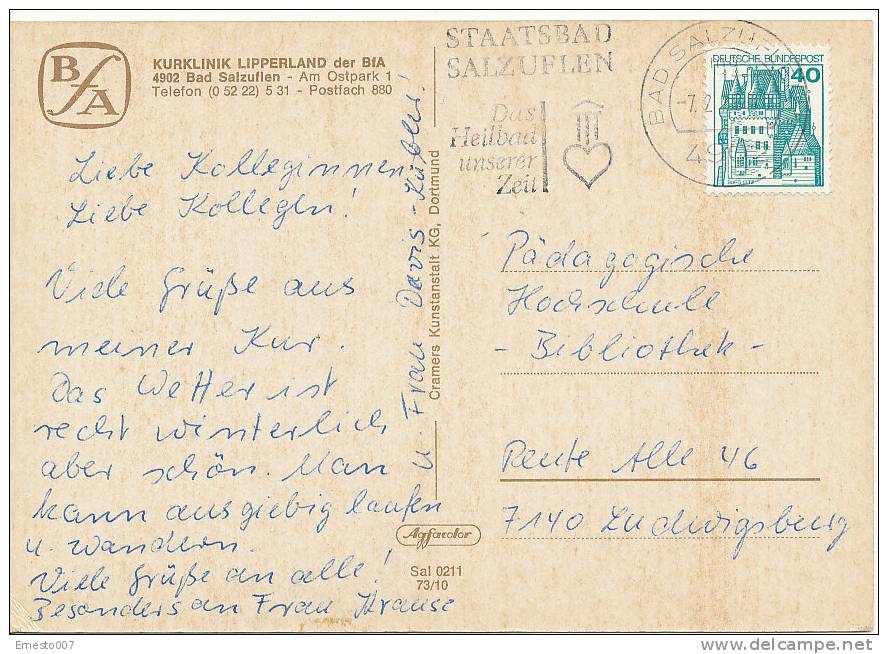 BfA
KURKLINIK LIPPERLAND der BfA
4902 Bad Salzuflen - Am Ostpark 1
Telefon (0 52 22) 5 31 - Postfach 880
Liebe Kolleginnen,
Liebe Kollegen!
Viele Grüße aus
meiner Kur.
Das Wetter ist
recht winterlich
aber schön. Man
kann ausgiebig laufen
u. wandern.
Viele Grüße an alle!
Besonders an Frau Krause
u. Frau Davis-Kübler!
Cramers Kunstanstalt KG, Dortmund
Agfacolor
Sal 0211
73/10
STAATSBAD
SALZUFLEN
Das
Heilbad
unserer
Zeit
BAD SALZUFLEN
-7.2
49
DEUTSCHE BUNDESPOST
40
BURG ELTZ
Pädagogische
Hochschule
- Bibliothek -
Reute Alle 46
7140 Ludwigsburg
Ernesto007
delcampe.net